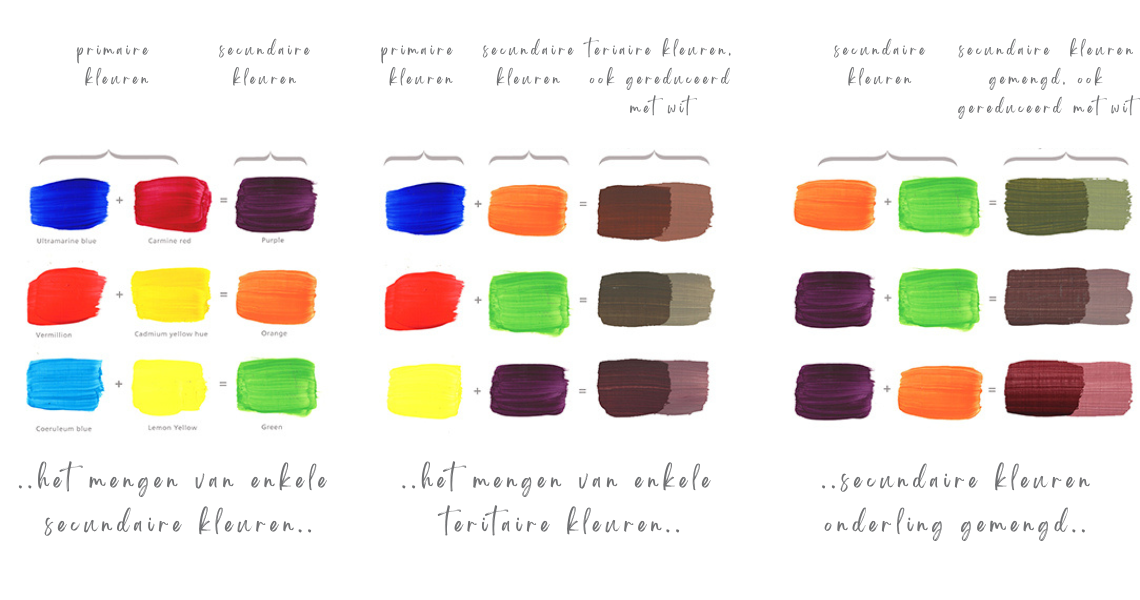 primaire
kleuren
secundaire
kleuren
+
=
Ultramarine blue
Carmine red
Purple
+
=
Vermillion
Cadmium yellow hue
Orange
+
=
Coeruleum blue
Lemon Yellow
Green
..het mengen van enkele
secundaire kleuren..
primaire
kleuren
secundaire
kleuren
teriaire kleuren,
ook gereduceerd
met wit
+
=
+
=
+
=
..het mengen van enkele
teritaire kleuren..
secundaire
kleuren
secundaire kleuren
gemengd, ook
gereduceerd met wit
+
=
+
=
+
=
..secundaire kleuren
onderling gemengd..